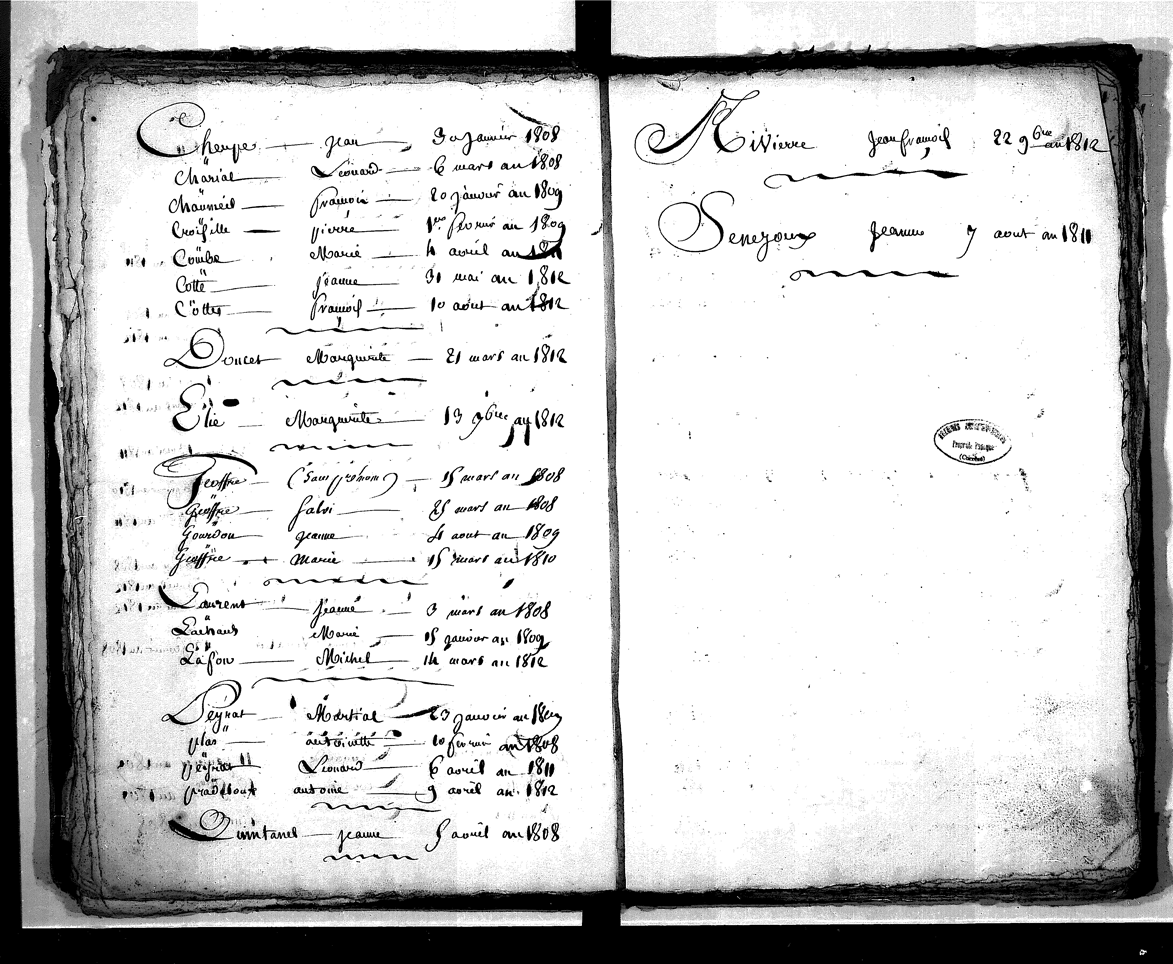 Cheupe jean 30 janvier 1808
Charial Léonard 6 mars an 1808
Chaumeil françois 20 janvier an 1809
Croisille pierre 1er février an 1809
Combe Marie 4 avril an 1811
Cotte jeanne 31 mai an 1812
Cottes françois 10 aout an 1812
Doucet Marguerite 21 mars an 1812
Elie Marguerite 13 9bre an 1812
Geoffre (Sans prénom) 15 mars an 1808
Geoffre Salvi 25 mars an 1808
Gourdon jeanne 4 aout an 1809
Geoffre marie 15 mars an 1810
Laurent jeanne 3 mars an 1808
Lachaud Marie 15 janvier an 1809
Lafon Michel 14 mars an 1812
Peyrat Martial 23 janvier an 1809
plas antoinette 10 février an 1808
peyrat Léonard 6 avril an 1811
pradeloux antoine 9 avril an 1812
Quintanel jeanne 5 avril an 1808
Rivierre Jean françois 22 9bre an 1812
Senejoux Jeanne 7 aout an 1811
(Corrèze)